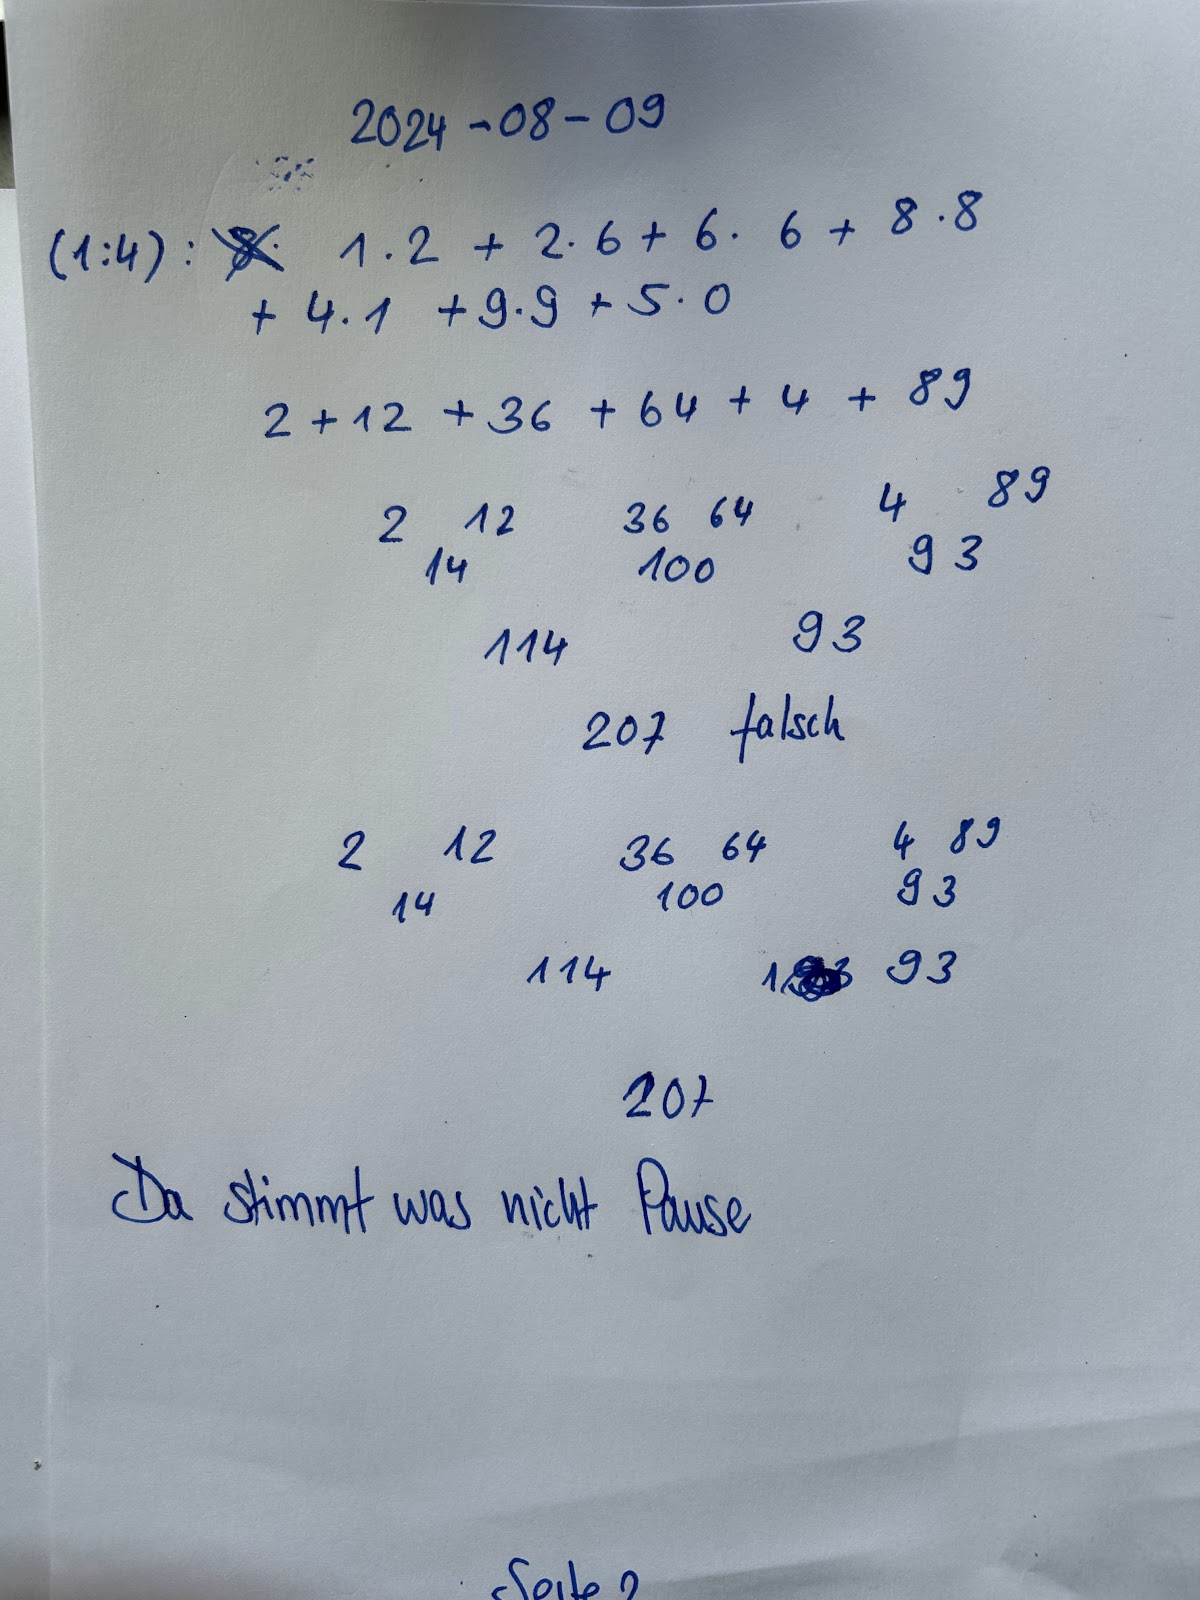 2024-08-09
(1:4): 1·2 + 2·6 + 6·6 + 8·8
+ 4·1 + 9·9 + 5·0
2 + 12 + 36 + 64 + 4 + 89
2 12 36 64 4 89
14 100 93
114 93
207 falsch
2 12 36 64 4 89
14 100 93
114 93
207
Da stimmt was nicht Pause
Seite 2